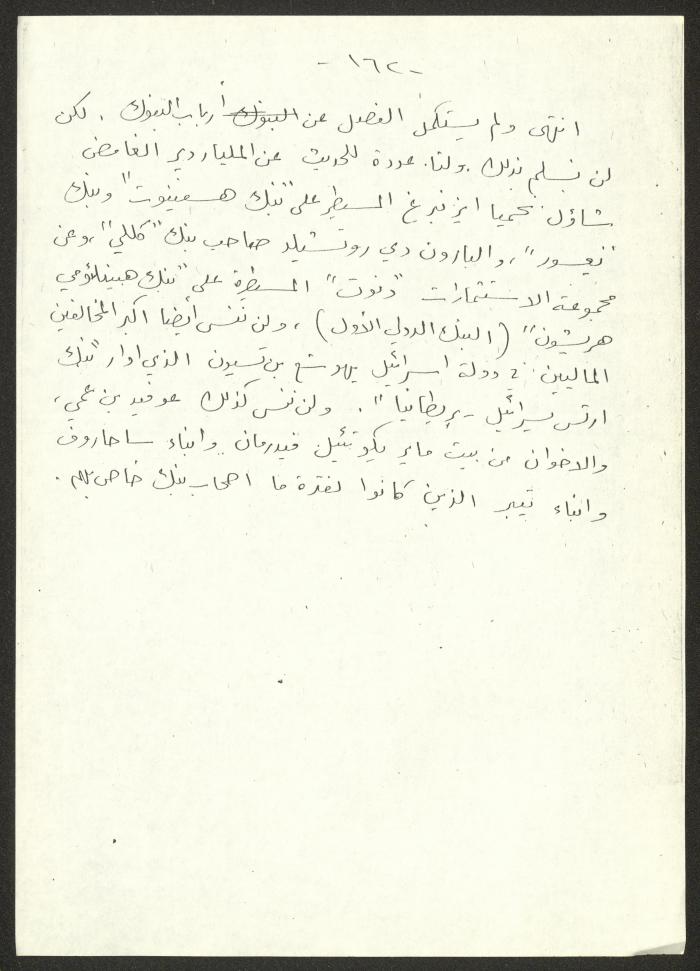 - ١٦٢ -
انتهى ولم يستكمل الفصل عن البنوك أرباب البنوك . لكن
لن نسلم بذلك . ولنا عودة للحديث عن الملياردير الغامض
شاؤل نحميا ايزنبرغ المسيطر على "بنك هسفنوت" وبنك
"يعسور" ، والبارون دي روتشيلد صاحب بنك "كللي" ، وعن
مجموعة الاستثمارات "دنوت" المسيطرة على "بنك هبينلئومي
هريشون" (البنك الدولي الأول) ، ولن ننسى أيضا اكبر المخالفين
الماليين في دولة اسرائيل يهوشع بن تسيون الذي ادار "بنك
ارتس يسرائيل - بريطانيا" . ولن ننسى كذلك عوفيد بن عمي ،
والاخوان من بيت ماير يكوتئيل فيدرمان وابناء ساحاروف
وابناء تيبر الذين كانوا لفترة ما اصحاب بنك خاص بهم .